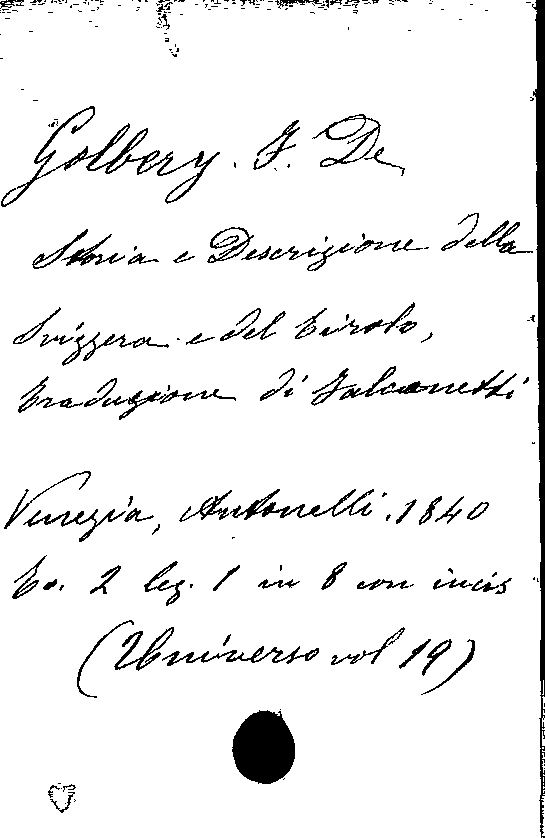 Golbery. J. De
Storia e Descrizione della
Svizzera e del Tirolo,
traduzione di Falconetti
Venezia, Antonelli. 1840
To. 2 leg. 1 in 8 con incis
(Universo vol 19)